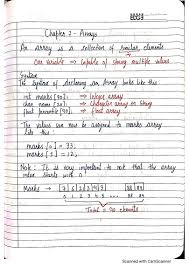 Chapter 7 - Arrays
An array is a collection of similar elements
One variable ⇒ Capable of storing multiple values
Syntax
The syntax of declaring an array looks like this:
int marks [90]; ⇒ Integer array
char name [20]; ⇒ Character array or string
float percentile [90]; ⇒ float array
The values can now be assigned to marks array
like this:
marks [0] = 33;
marks [1] = 12;
Note: It is very important to note that the array
index starts with 0!
marks →
0 1 2 3 4 5 .... 88 89
Total = 90 elements
Scanned with CamScanner